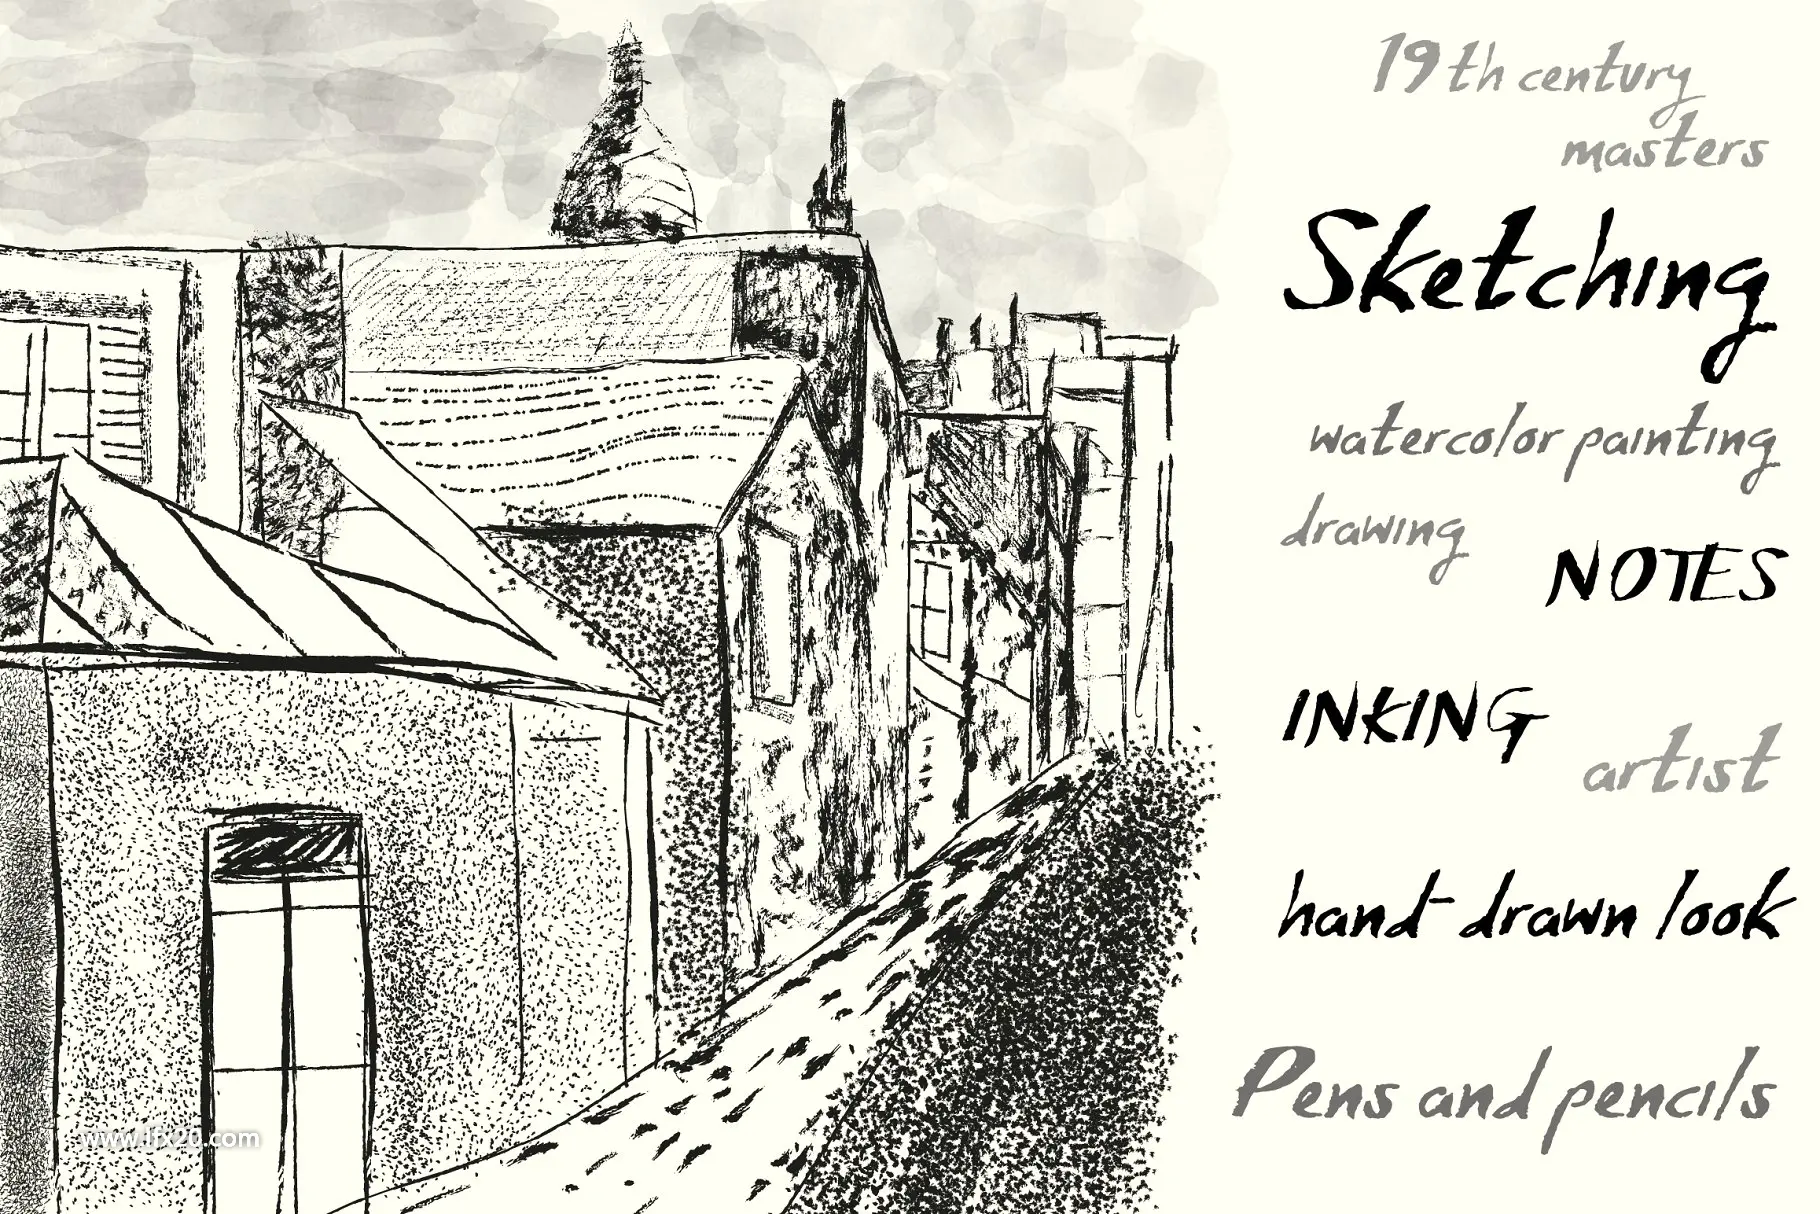 19th century
masters
Sketching
watercolor painting
drawing
NOTES
INKING
artist
hand-drawn look
Pens and pencils
www.lfx20.com